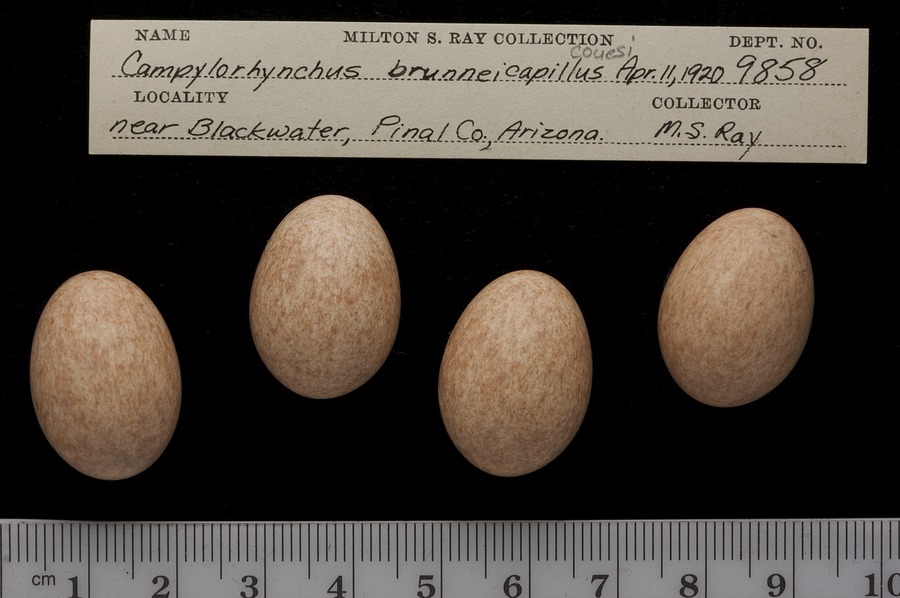 NAME MILTON S. RAY COLLECTION DEPT. NO.
couesi
Campylorhynchus brunneicapillus Apr. 11, 1920 9858
LOCALITY COLLECTOR
near Blackwater, Pinal Co., Arizona. M.S. Ray
cm 1 2 3 4 5 6 7 8 9 10